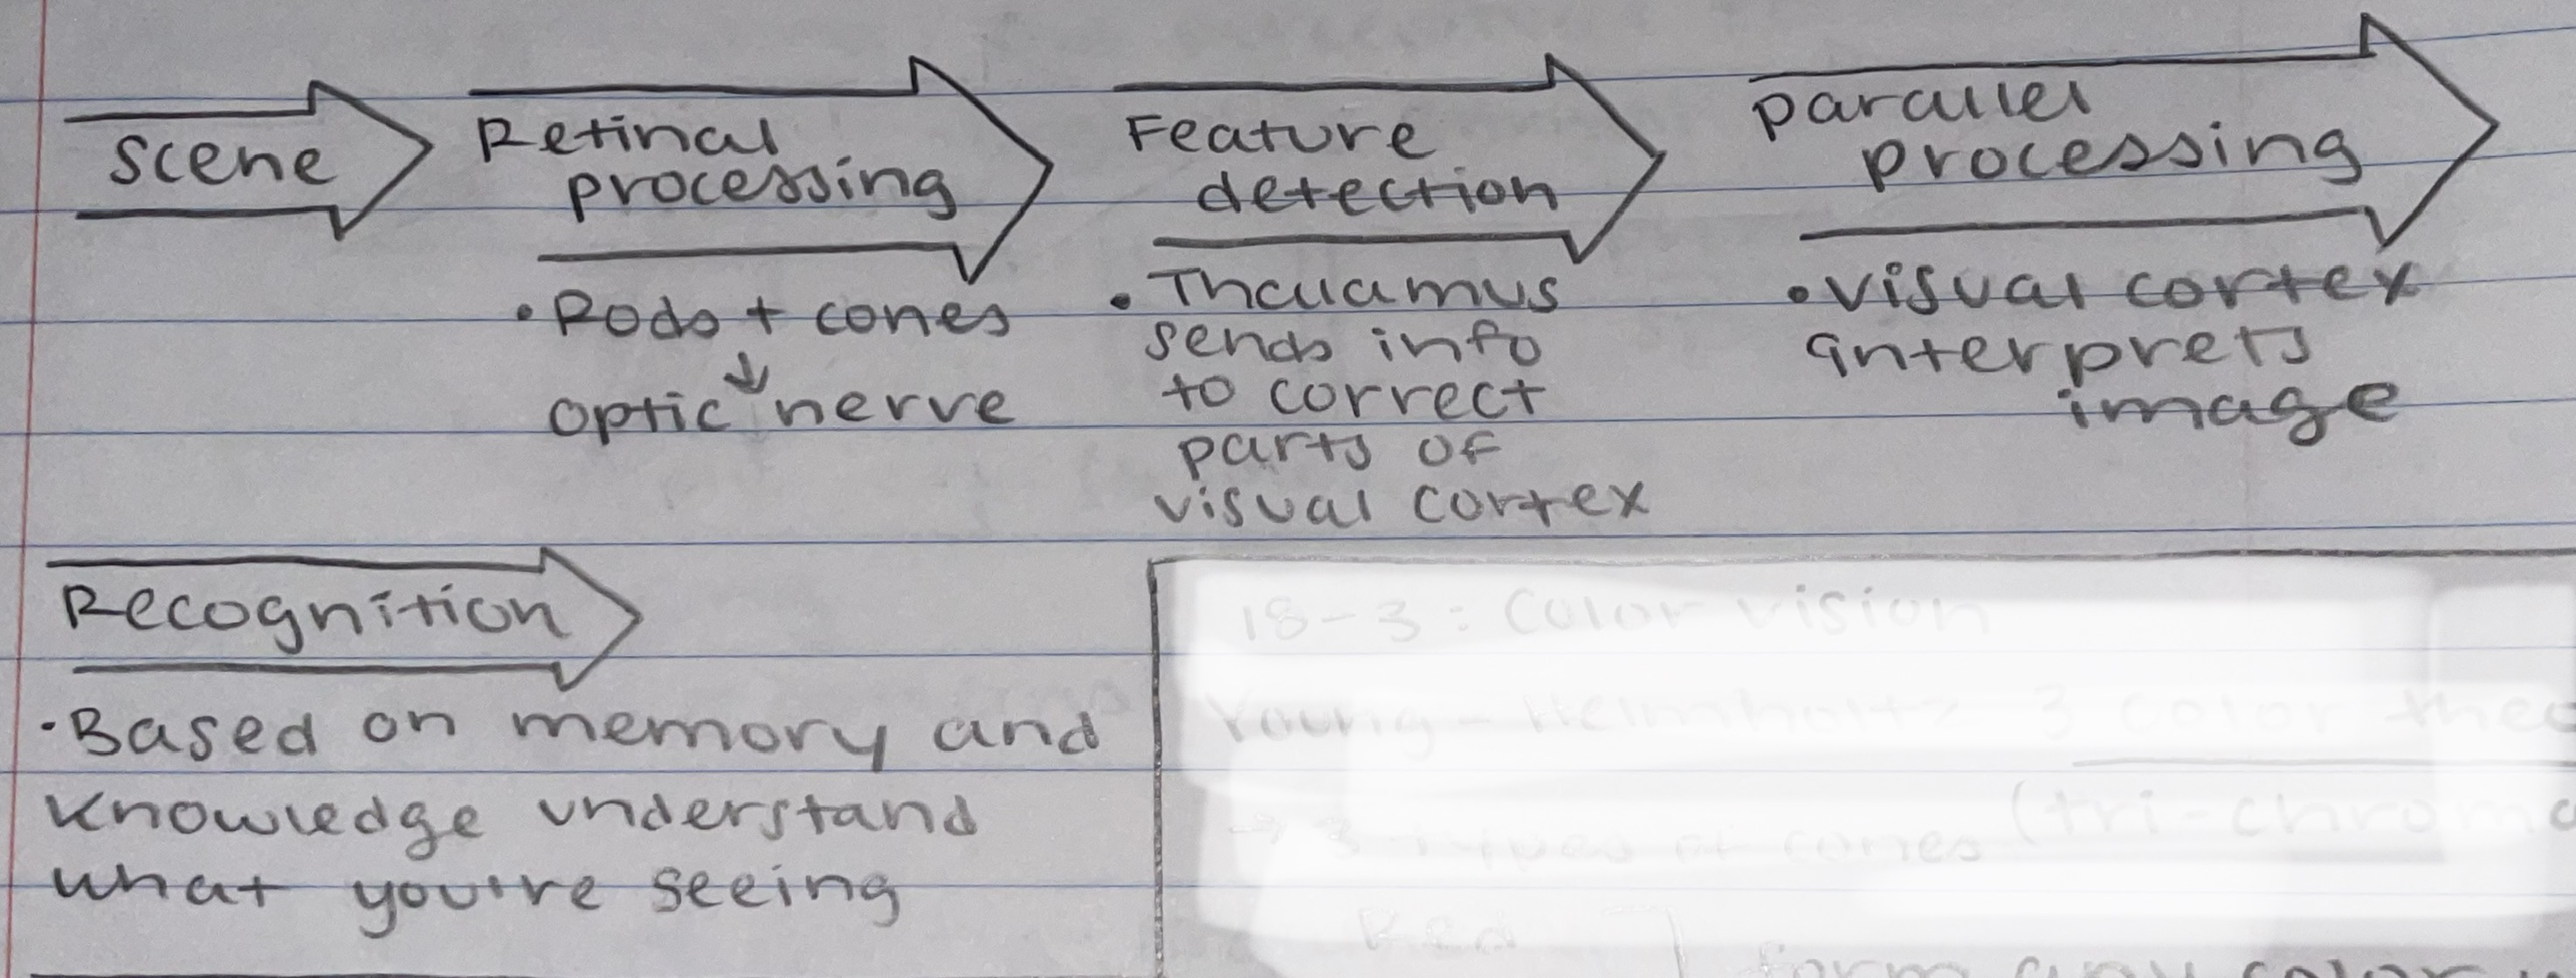 scene
Retinal
processing
• Rods + cones
↓
optic nerve
Feature
detection
• Thalamus
sends info
to correct
parts of
visual cortex
parallel
processing
• visual cortex
interprets
image
Recognition
• Based on memory and
knowledge understand
what you're seeing
18-3: Color vision
Young - Helmholtz 3 color
→ 3 types of cones (tri-
Red
form any color